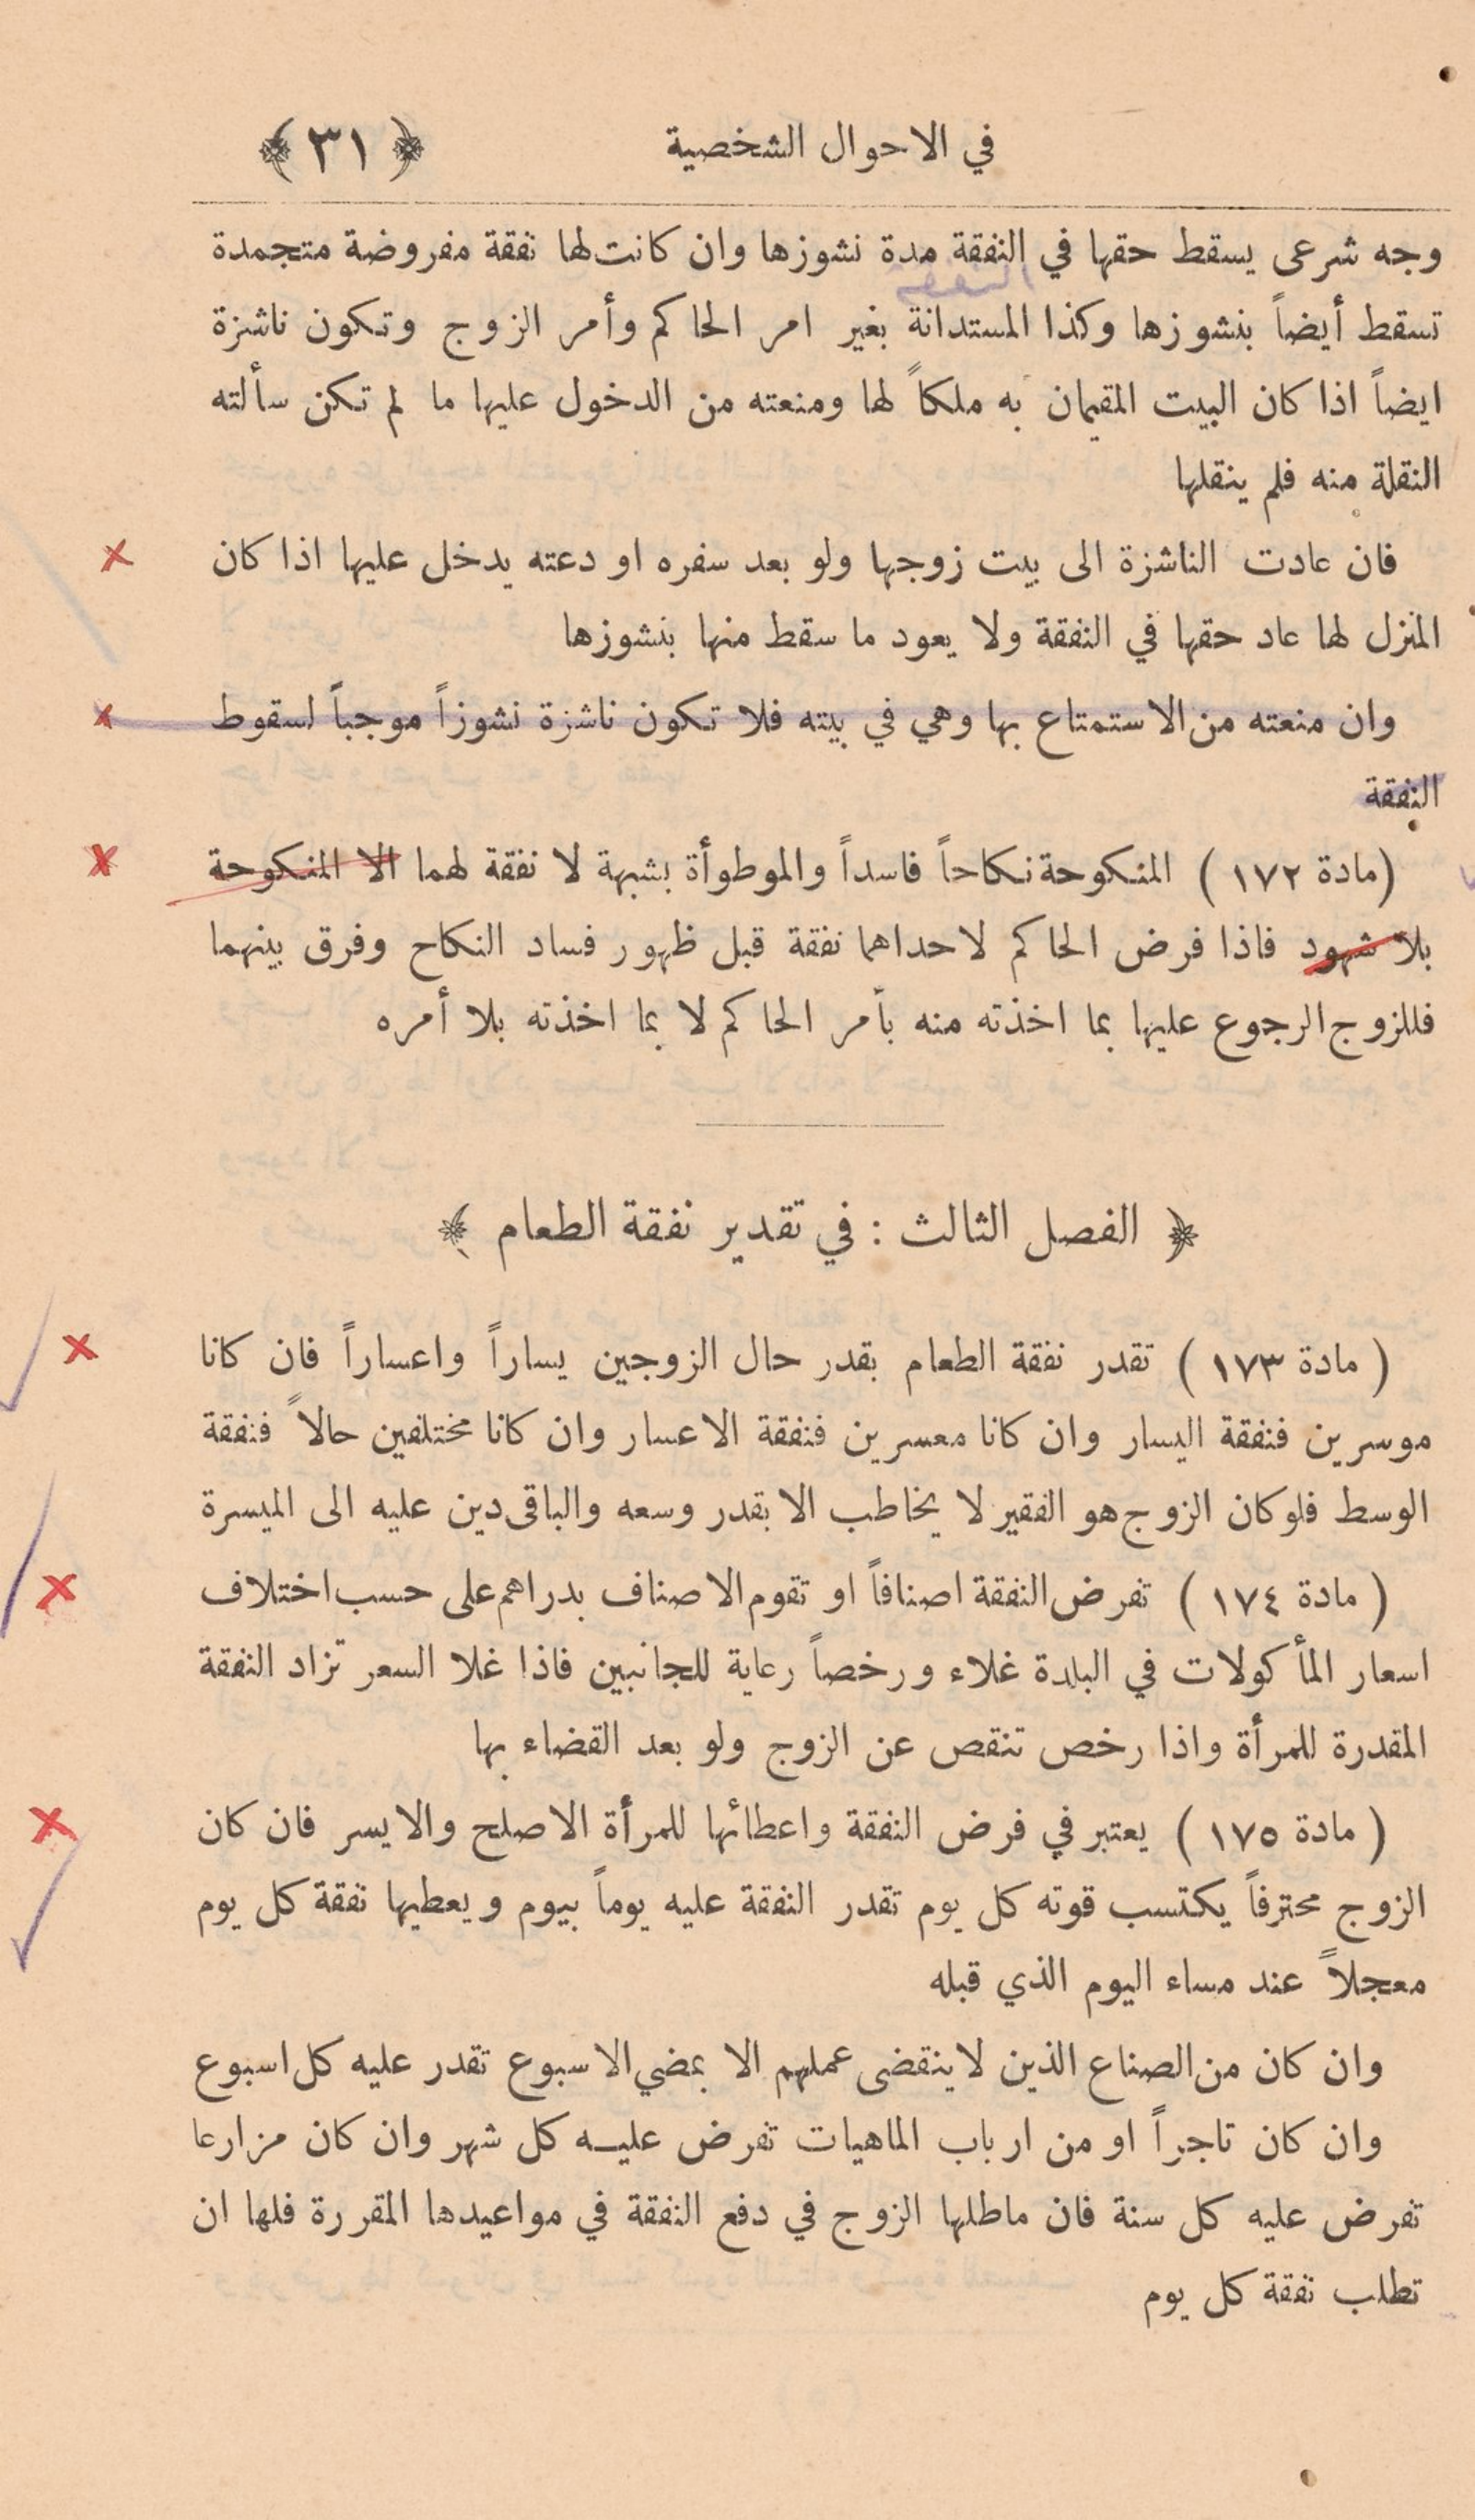 في الاحوال الشخصية ﴿ ٣١ ﴾
وجه شرعى يسقط حقها في النفقة مدة نشوزها وان كانت لها نفقة مفروضة متجمدة
تسقط أيضاً بنشوزها وكذا المستدانة بغير امر الحاكم وأمر الزوج وتكون ناشزة
ايضاً اذا كان البيت المقيمان به ملكاً لها ومنعته من الدخول عليها ما لم تكن سألته
النقلة منه فلم ينقلها
فان عادت الناشزة الى بيت زوجها ولو بعد سفره او دعته يدخل عليها اذا كان
المنزل لها عاد حقها في النفقة ولا يعود ما سقط منها بنشوزها
وان منعته من الاستمتاع بها وهي في بيته فلا تكون ناشزة نشوزاً موجباً لسقوط
النفقة
(مادة ١٧٢) المنكوحة نكاحاً فاسداً والموطوأة بشبهة لا نفقة لهما الا المنكوحة
بلا شهود فاذا فرض الحاكم لاحداهما نفقة قبل ظهور فساد النكاح وفرق بينهما
فللزوج الرجوع عليها بما اخذته منه بأمر الحاكم لا بما اخذته بلا أمره
﴿ الفصل الثالث : في تقدير نفقة الطعام ﴾
( مادة ١٧٣ ) تقدر نفقة الطعام بقدر حال الزوجين يساراً واعساراً فان كانا
موسرين فنفقة اليسار وان كانا معسرين فنفقة الاعسار وان كانا مختلفين حالاً فنفقة
الوسط فلو كان الزوج هو الفقير لا يخاطب الا بقدر وسعه والباقى دين عليه الى الميسرة
( مادة ١٧٤ ) تفرض النفقة اصنافاً او تقوم الاصناف بدراهم على حسب اختلاف
اسعار المأكولات في البلدة غلاء ورخصاً رعاية للجانبين فاذا غلا السعر تزاد النفقة
المقدرة للمرأة واذا رخص تنقص عن الزوج ولو بعد القضاء بها
( مادة ١٧٥ ) يعتبر في فرض النفقة واعطائها للمرأة الاصلح والايسر فان كان
الزوج محترفاً يكتسب قوته كل يوم تقدر النفقة عليه يوماً بيوم ويعطيها نفقة كل يوم
معجلاً عند مساء اليوم الذي قبله
وان كان من الصناع الذين لا ينقضى عملهم الا بمضي الاسبوع تقدر عليه كل اسبوع
وان كان تاجراً او من ارباب الماهيات تفرض عليه كل شهر وان كان مزارعا
تفرض عليه كل سنة فان ماطلها الزوج في دفع النفقة في مواعيدها المقررة فلها ان
تطلب نفقة كل يوم